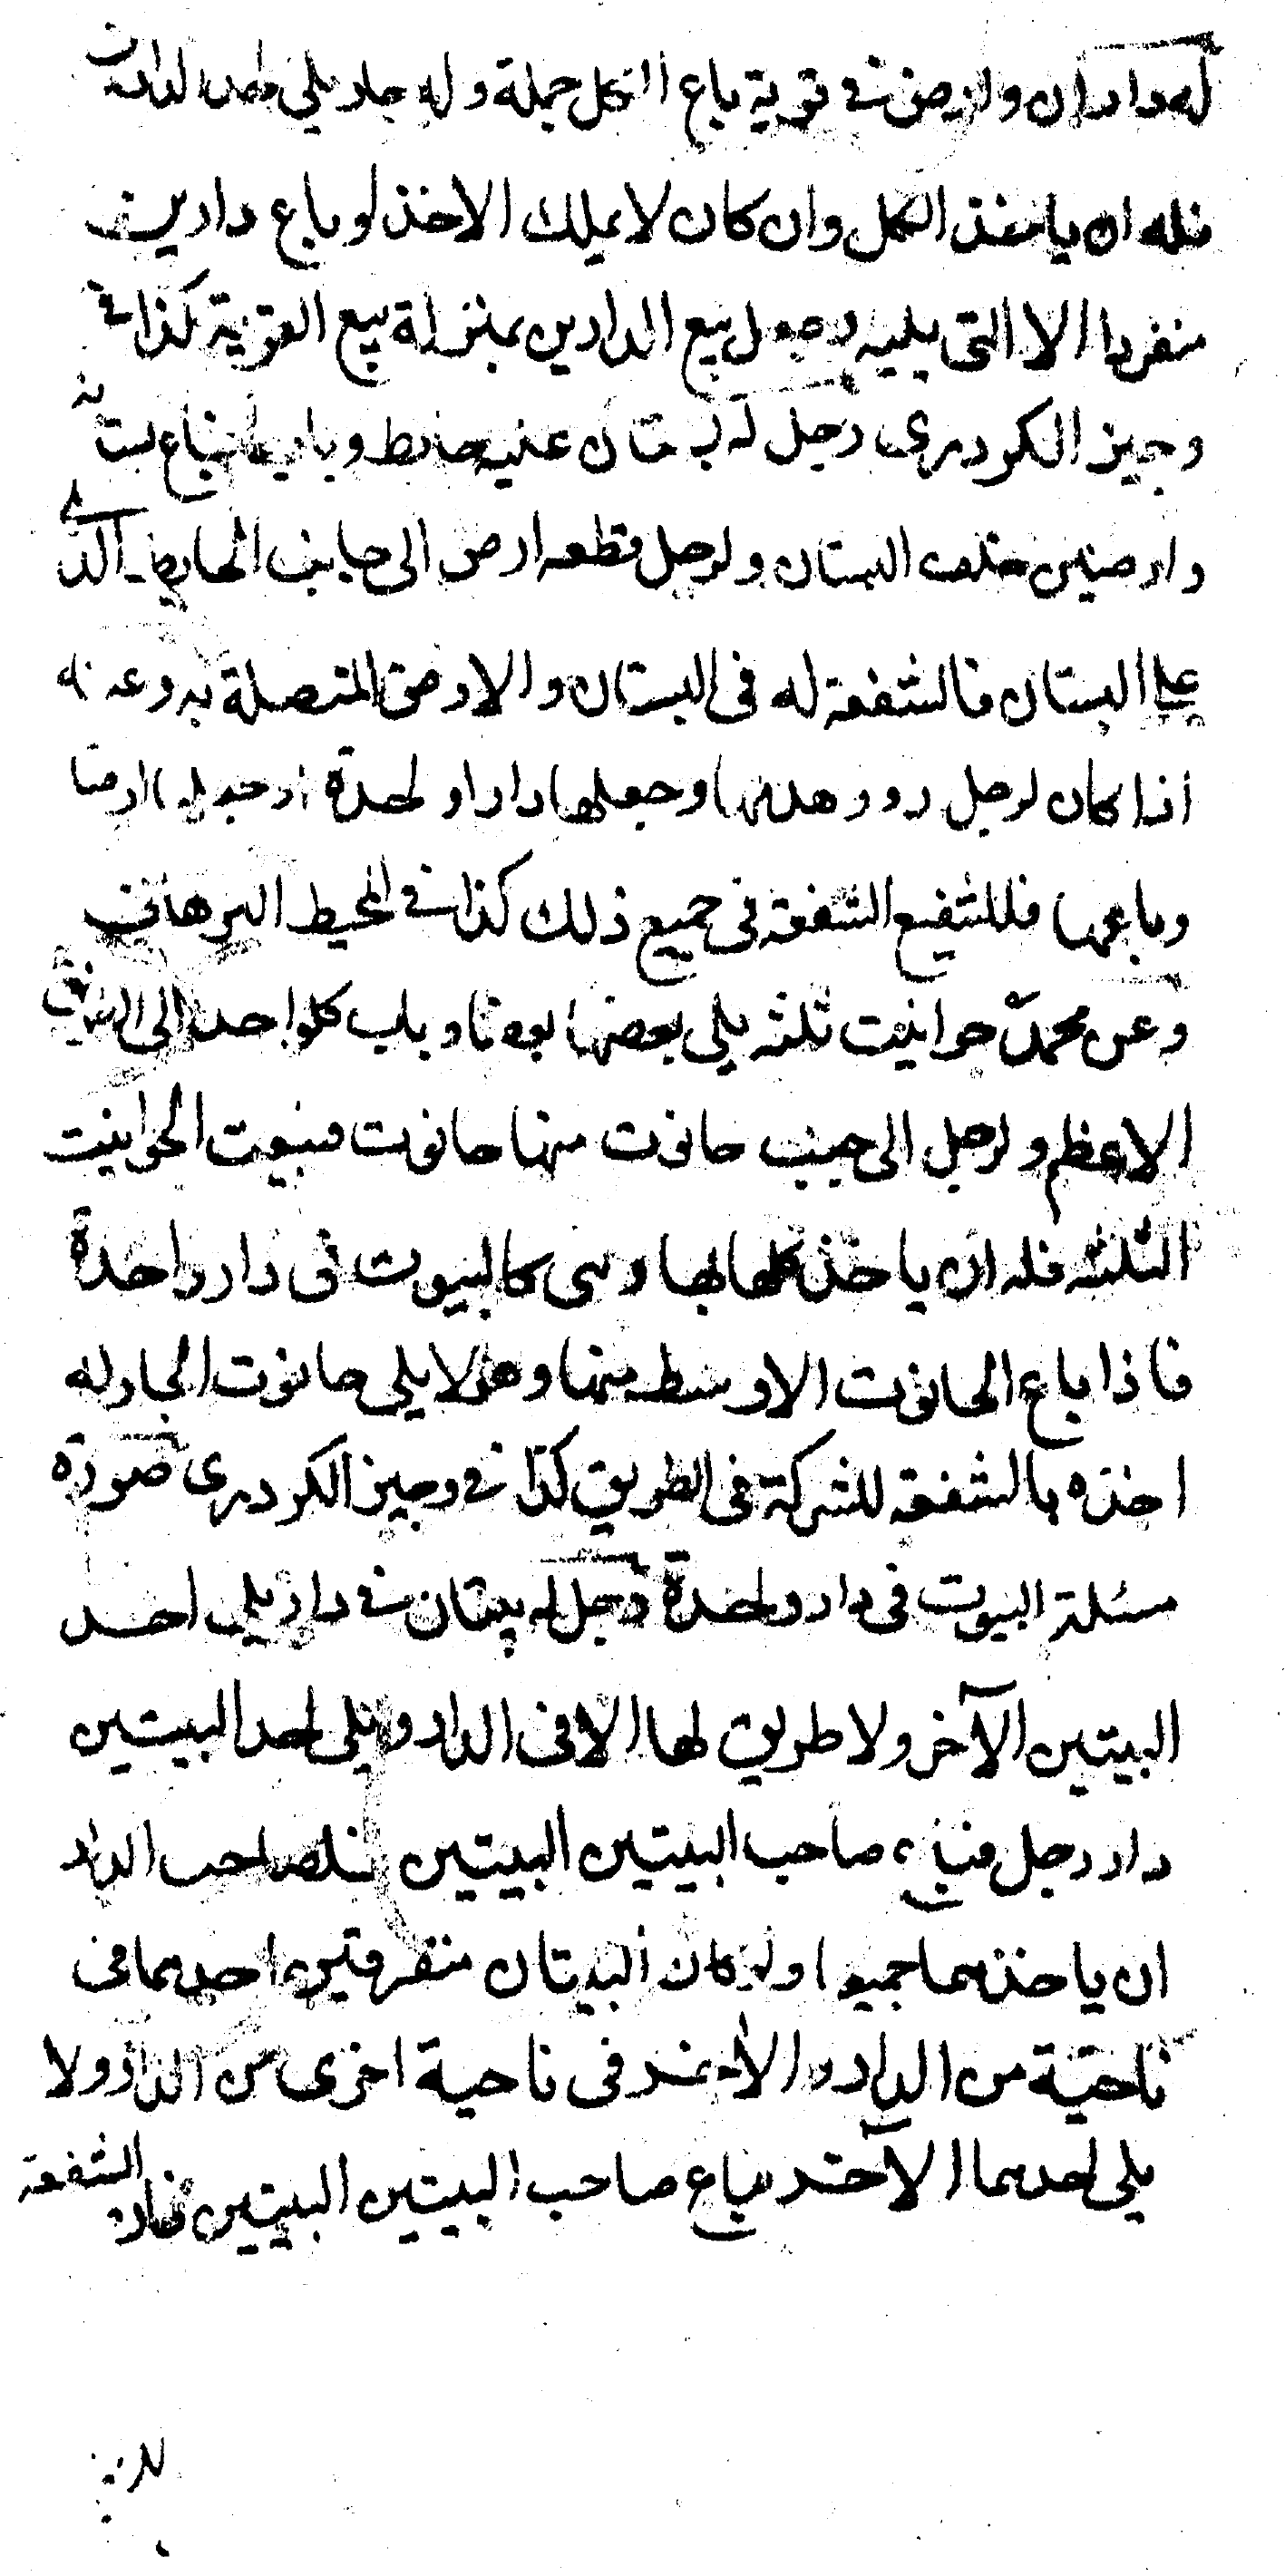 له داران وارض في قرية باع الكل جملة وله جار يلي احد الدارين
فله ان ياخذ الكل وان كان لا يملك الاخذ لو باع دارين
منفردا الا التي يليه وجعل بيع الدارين بمنزلة بيع القرية كذا في
وجيز الكردري رجل له بستان عليه حائط وباب فباع بستانه
وارضين خلف البستان ولرجل قطعه ارض الى جانب الحايط الذي
على البستان فالشفعة له في البستان والارض المتصلة به وعنه
اذا كان لرجل دور هدمها وجعلها دارا واحدة او جعلها ارضا
وباعها فللشفيع الشفعة في جميع ذلك كذا في المحيط البرهاني
وعن محمد حوانيت ثلثه يلي بعضها بعضا وباب كلواحد الى الطريق
الاعظم ولرجل الى جنب حانوت منها حانوت فبيعت الحوانيت
الثلثه فله ان ياخذ كلها بها وهي كالبيوت في دار واحدة
فاذا باع الحانوت الاوسط منها وهو لا يلي حانوت الجار له
اخذه بالشفعة للشركة في الطريق كذا في وجيز الكردري صورة
مسئلة البيوت في دار واحدة رجل له بيتان في دار يلي احد
البيتين الآخر ولا طريق لها الا في الدار ويلي احد البيتين
دار رجل فباع صاحب البيتين البيتين فلصاحب الدار
ان ياخذهما جميعا ولو كان البيتان متفرقتين احدهما في
ناحية من الدار والآخر في ناحية اخرى من الدار ولا
يلي احدهما الآخر فباع صاحب البيتين البيتين فجار الشفعة